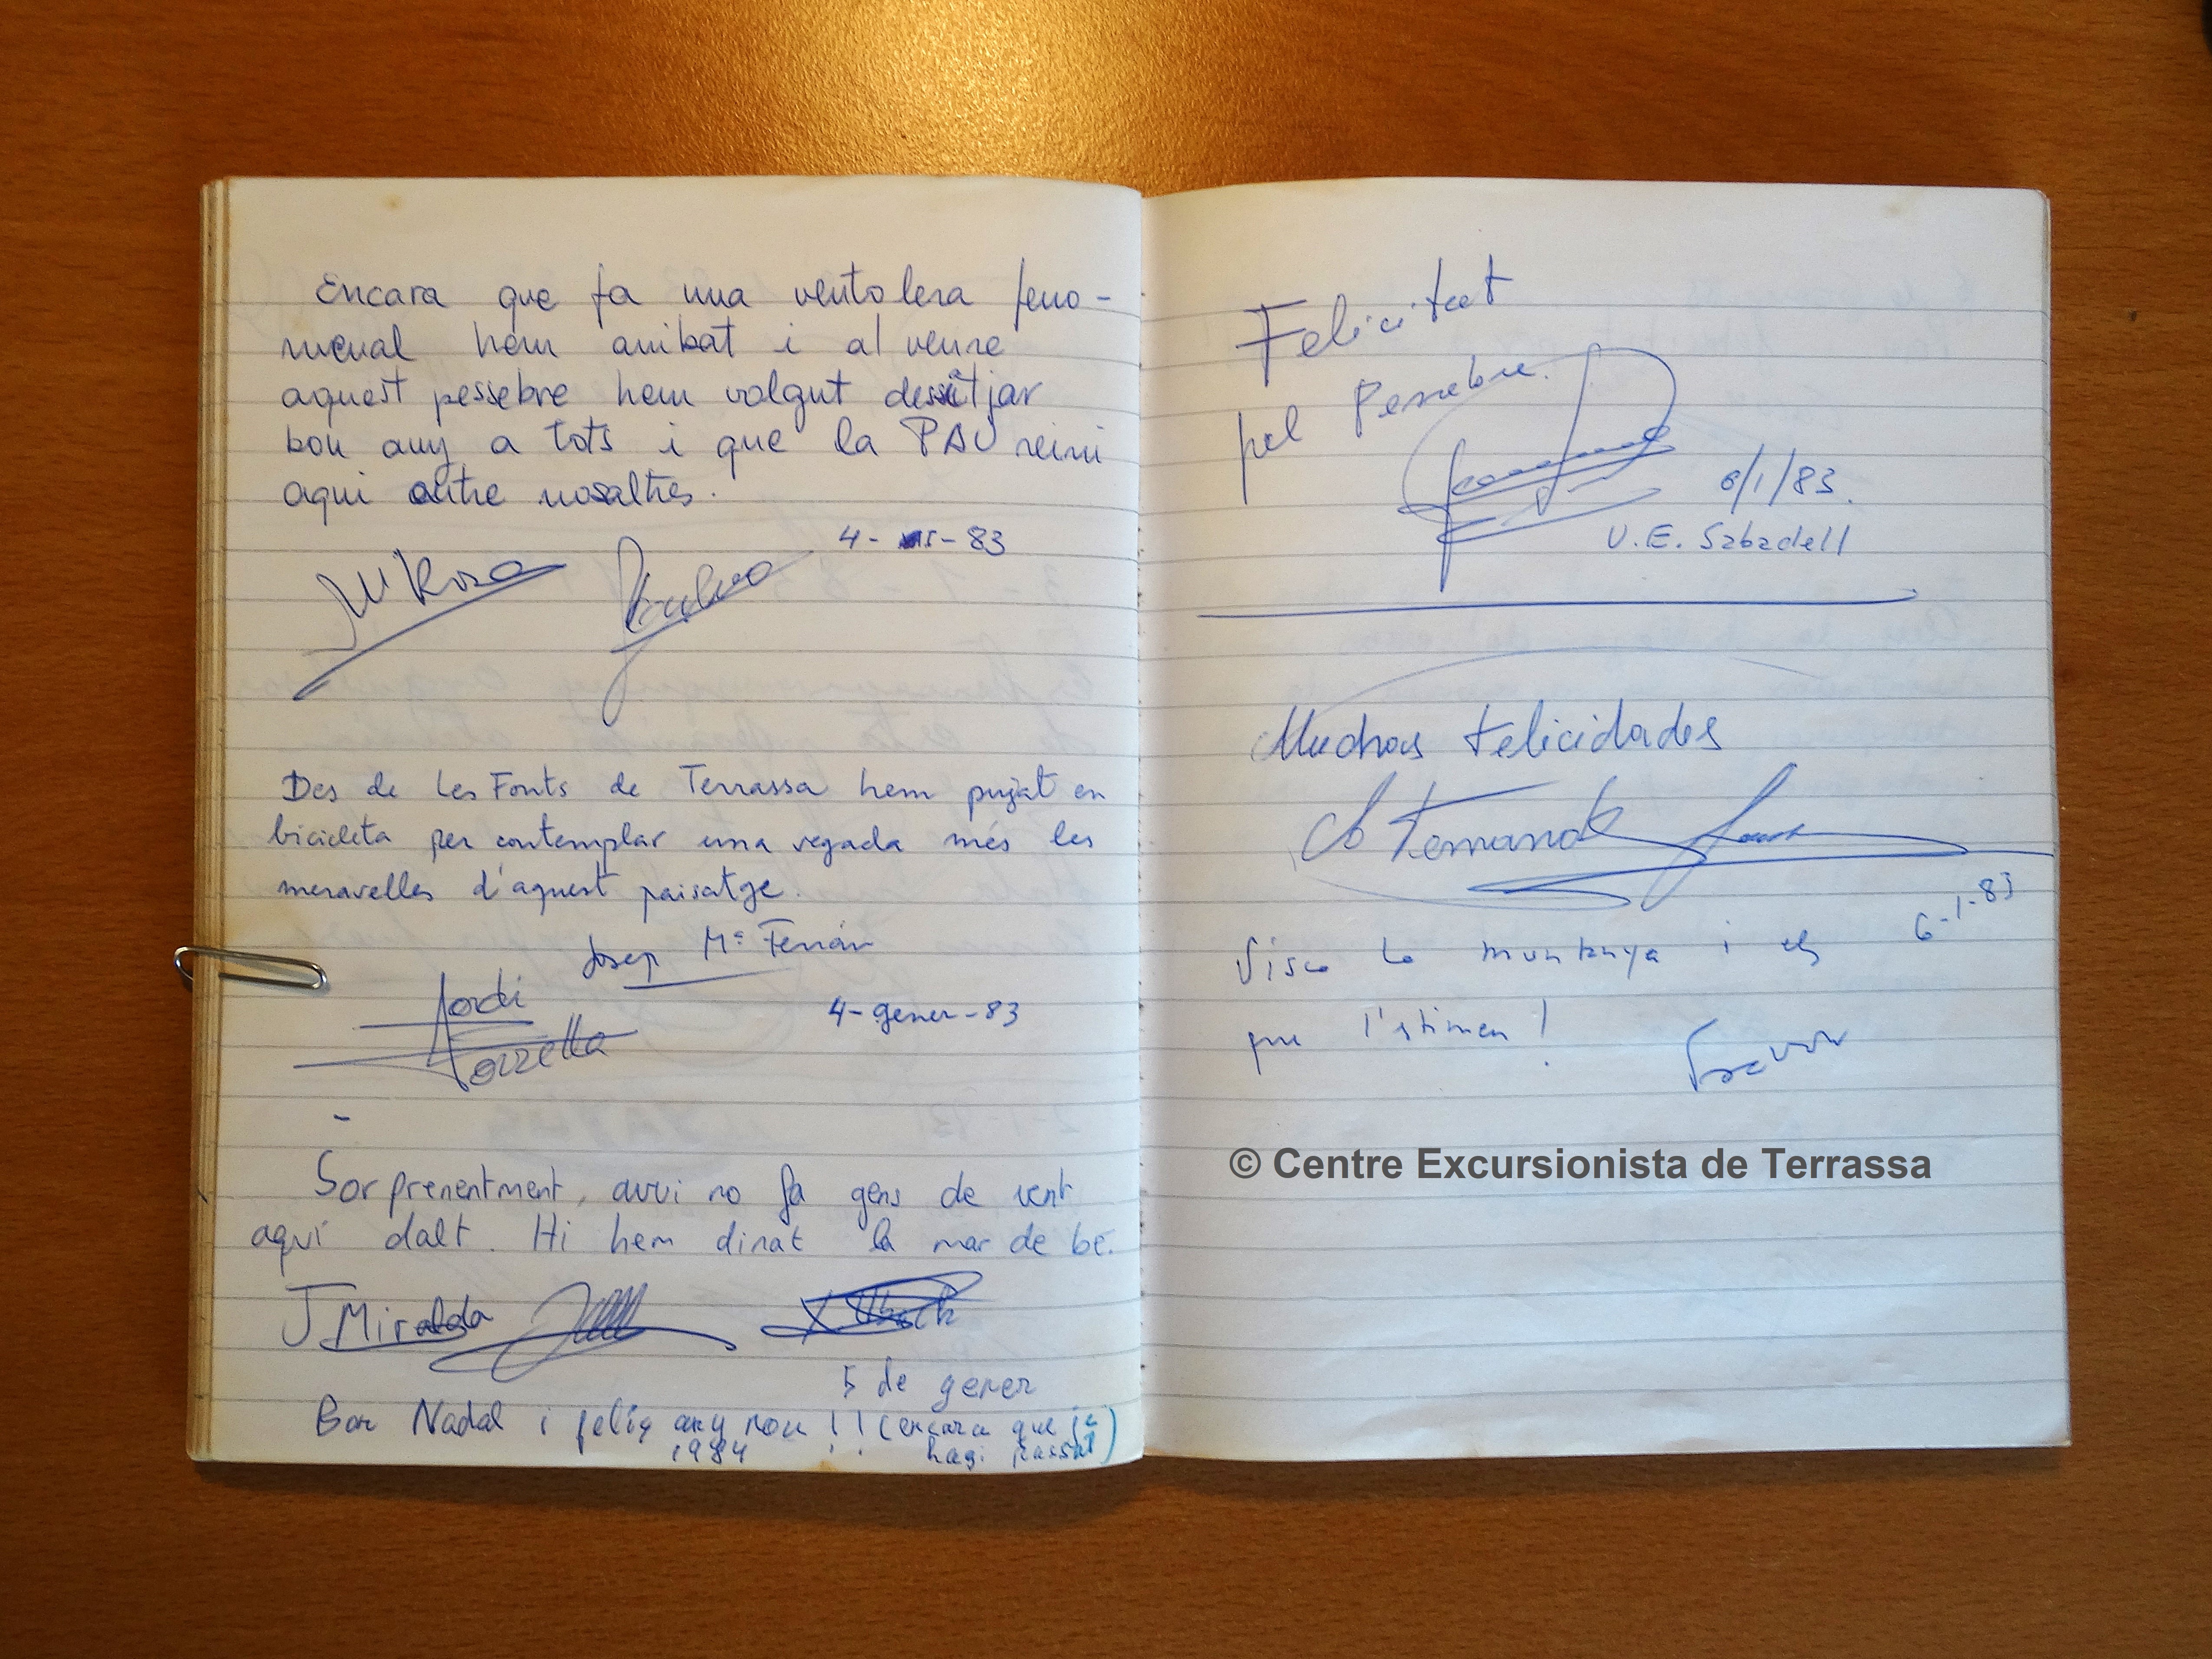 Encara que fa una ventolera feno-
menal hem arribat i al veure
aquest pessebre hem volgut desitjar
bon any a tots i que la PAU reini
aqui entre nosaltres.
4- -83
Mª Rosa
Des de Les Fonts de Terrassa hem pujat en
bicicleta per contemplar una vegada més les
meravelles d'aquest paisatge.
Josep Mª Ferrán
Jordi
Torrella
4-gener-83
Sorprenentment, avui no fa gens de vent
aquí dalt. Hi hem dinat la mar de bé.
J Miralda
5 de gener
Bon Nadal i feliç any nou !! (encara que ja
1984 hagi passat)
Felicitat
pel Pessebre.
6/1/83.
U.E. Sabadell
Muchas Felicidades
6-1-83
Visca la muntanya i els
que l'estimen!
© Centre Excursionista de Terrassa